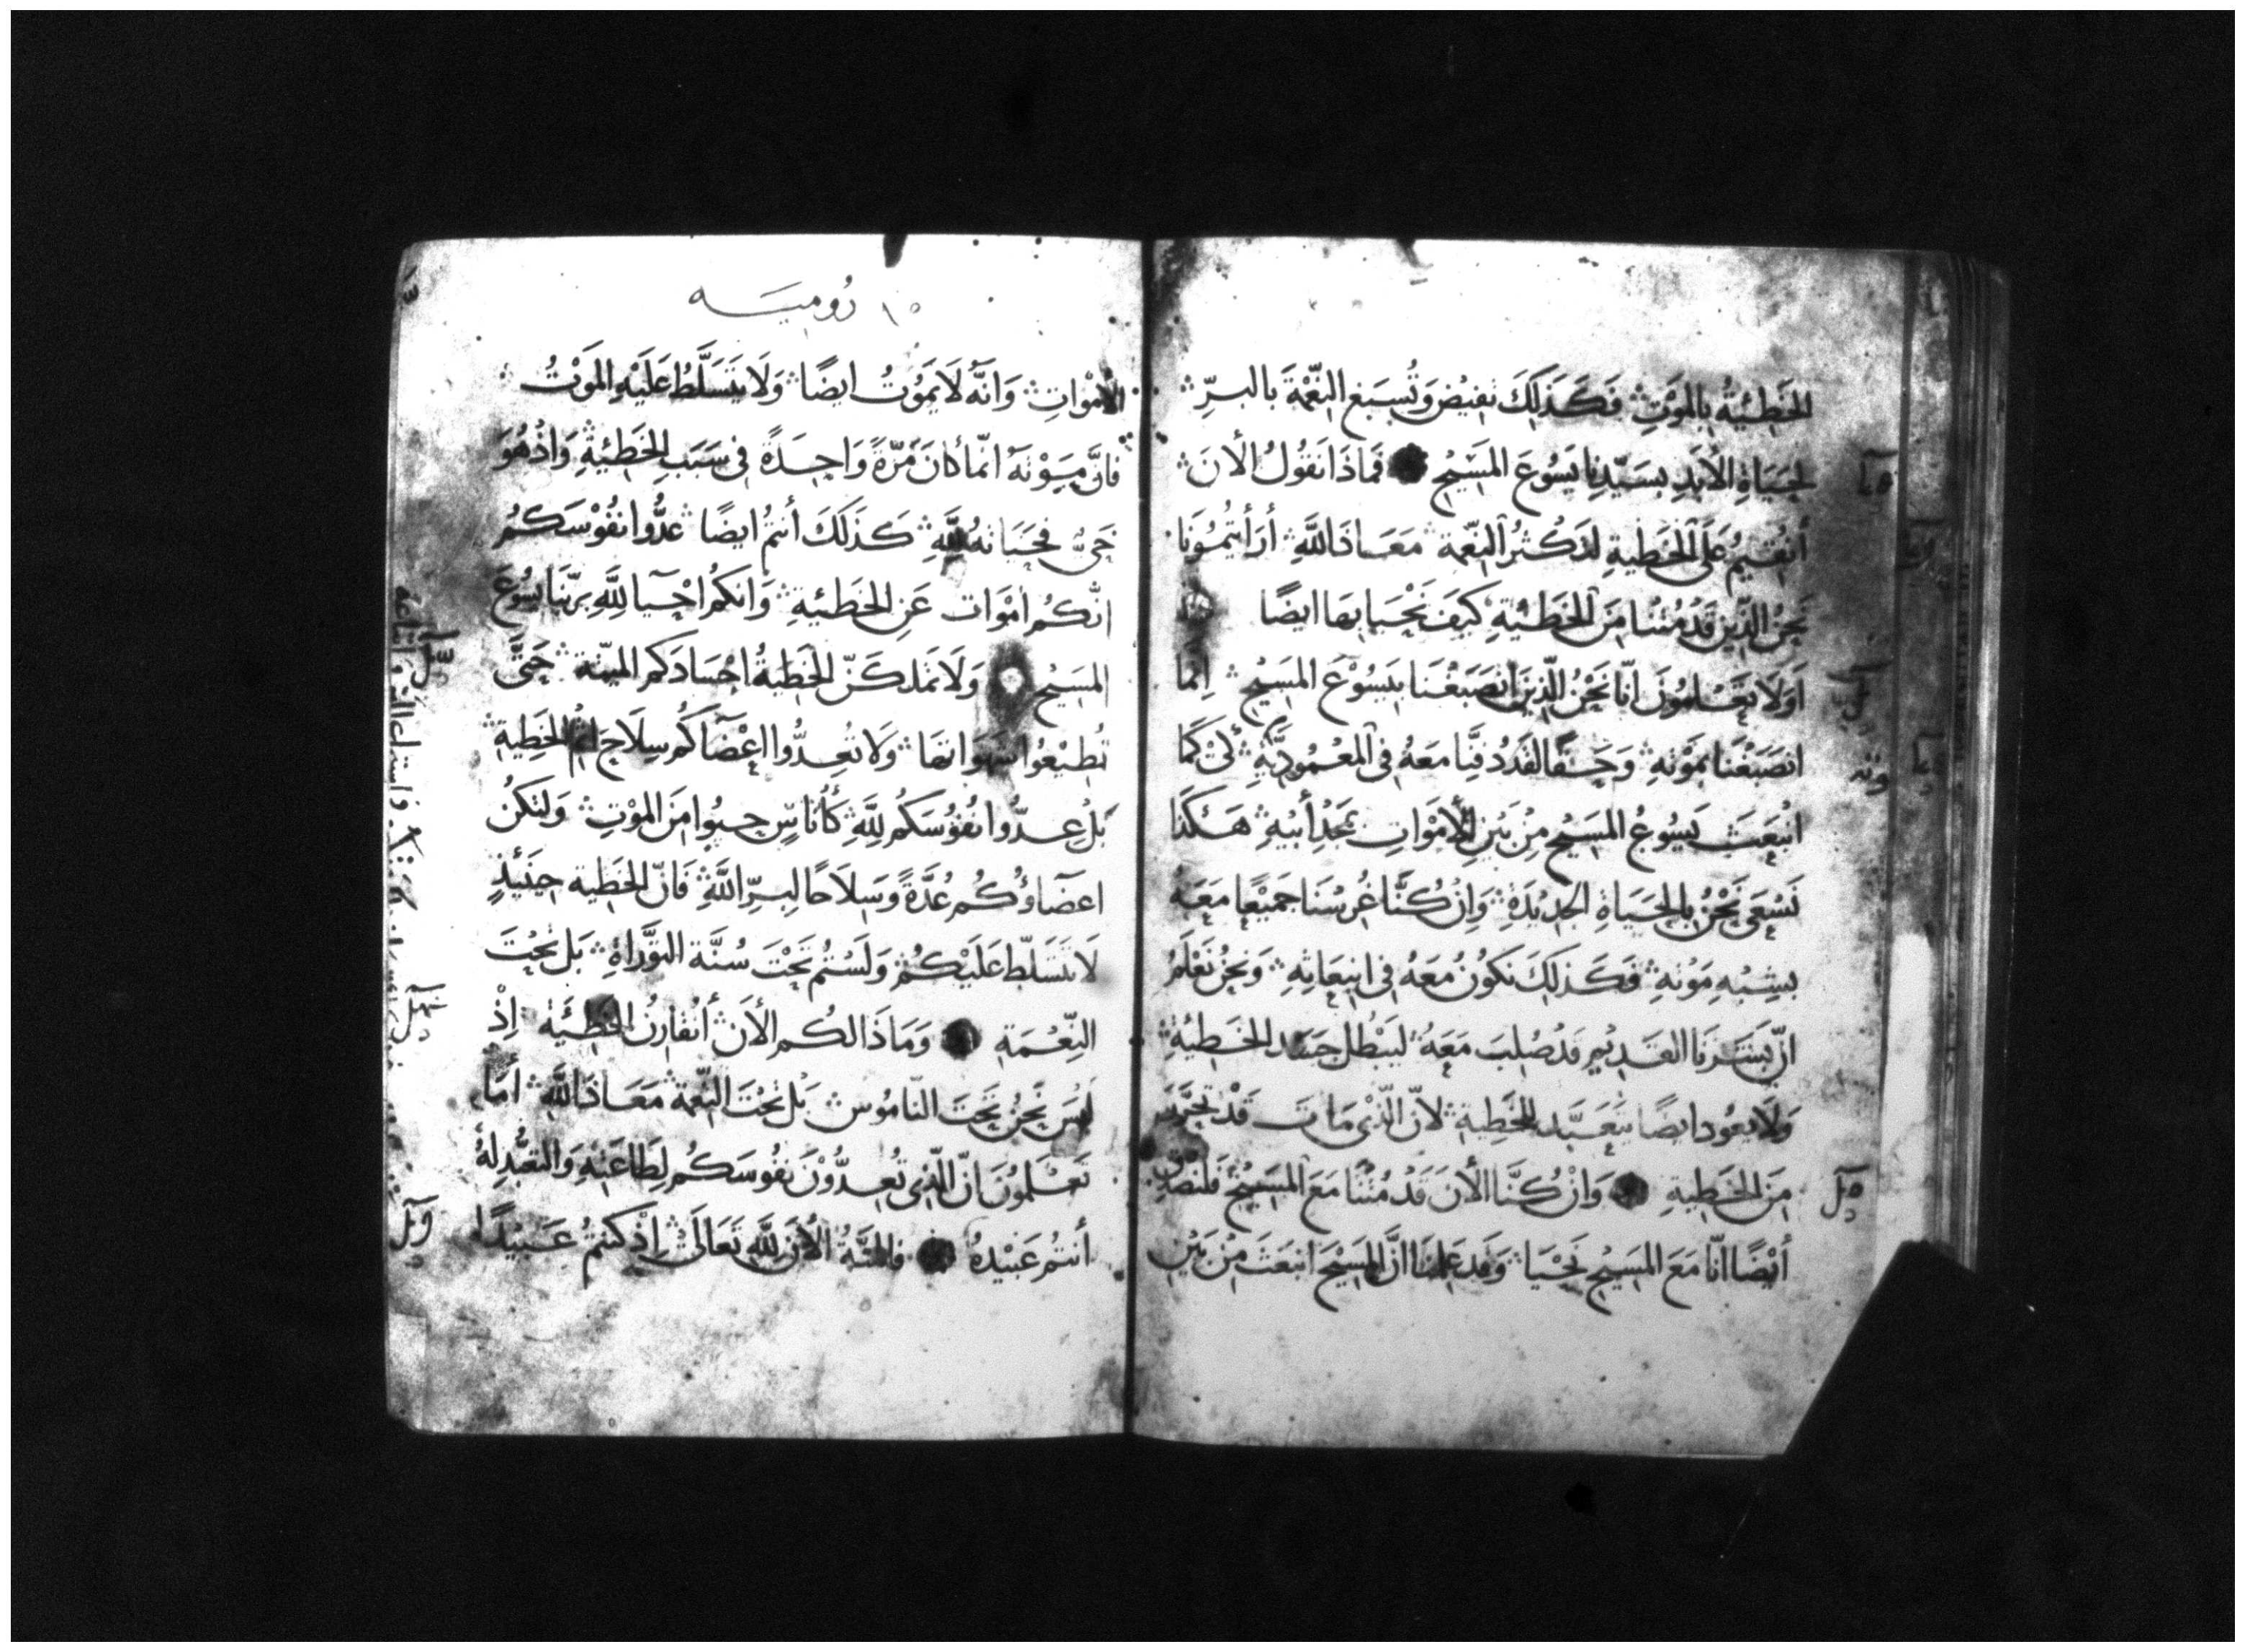 الخَطِيئةُ بِالمَوْتِ فَكَذَلِكَ تفيضُ وَتُسبَغ النِّعْمَةَ بالبرِّ
لحَيَاةِ الأبَدِ بسَيّدِنا يَسُوعَ المَسِيْحِ فَماذَا نَقُولُ الأنَ
أنُقيْمُ عَلَى الخَطيةِ لتَكْثُرُ النِّعمة مَعَاذَ اللَّهِ أرَأيتُمُونَا
نَحْنُ الَّذِين قَدْ مُتْنَا مِنَ الخَطيئَةِ كيَفَ نَحْيَا بهَا ايضًا
اَوَلَا تعْلمُونَ انَّا نَحْنُ الَّذِينَ انصَبَغْنَا بِيَسُوْعَ المَسِيْحِ اِنما
انصَبَغْنَا بمَوْتهِ وَحَقًا لقَدْ دفِنَّا مَعَهُ فى المعْمُودِيَّةِ لِكَىْ كَمَا
انْبَعَثَ يَسُوعُ المسَيْح مِنْ بَيْنِ الأمْوَاتِ بمَجْدِ أبيْهِ هَكَذَا
نَسْعَى نَحْنُ بِالحَيَاةِ الجَدِيْدَةِ وَاِنْ كُنَّا غُرِسْنَا جَمِيْعًا مَعَهُ
بشِبْهِ مَوْتهِ فَكَذلِكَ نكوُنُ مَعَهُ فى انبِعَاثِهِ وَنحْنُ نَعْلَمُ
انّ بَشَرَنَا القَدِيْم قَدْ صُلِبَ مَعَهُ ليَبْطُلَ جَسَد الخَطِيئةِ
وَلَا يعُودُ ايضًا يتَعَبَّد للخَطِية لأنَّ الَّذِى مَاتَ قَدْ تحَرَّرَ
مِنَ الخَطِيةِ وَانْ كُنَّا الأنَ قَدْ مُتْنَا مَعَ المَسِيْحِ فَلنصَدّق
أيْضًا انّا مَعَ المَسِيْحِ نَحْيَا وَقَد عَلِمْنَا انَّ المَسِيْحَ انبَعَثَ مِنْ بَيْنِ
١٥ رُوميَــه
الأمْوَاتِ وَانَّهُ لَا يَمَوُتُ ايضًا وَلَا يتَسَلَّطُ عَلَيْهِ المَوْتُ
فانَّ مِيتَوْتَهُ انّمَا كانَ مَرّةً وَاحِدَةً فى سَبَبِ الخَطِيئةِ وَاِذْ هُوَ
حَىٌّ فَحَيَاتهُ لِلَّهِ كَذَلكَ أنتمُ ايضًا عدُّوا نفُوْسَكمُ
انّكم امْوَات عَنِ الخَطِيئةِ وَانكم احْيَا لِلَّهِ بربّنَا يَسُوْعَ
المَسِيْحِ وَلَا تَملكَنّ الخَطيةُ اجْسَادَكم الميّتة حَتَّى
تُطيْعُوا شهَوَاتهَا وَلَا تُعِدُّوا اعْضَآكُم سِلَاحَ اثم الخَطِيةِ
بَلْ عِدُّوا نفُوُسَكُم لِلَّهِ كَأُنَاسٍ حيُوا مِنَ المْوْتِ وَلتكنُ
اعضَاؤُكُم عُدَّةً وَسِلَاحًا لِبرِّ اللَّهِ فَانّ الخَطِية حِينَئِذٍ
لَا تتَسَلّط عَلَيْكُمْ وَلَسْتُمْ تَحْتَ سُنَّة التوَّرَاةِ بَل تحْتَ
النِّعْمَةِ وَمَاذَا لكُم الأنَ أنُفارِنُ الخَطِيَّة اِذْ
لَيْسَ نَحْنُ تَحْتَ النّامُوُس بَل تَحْتَ النِّعْمة مَعَاذَ اللَّهِ أمَا
تَعْلَمُوْنَ انّ الَّذِى تُعِدُّوْنَ نفُوسَكُم لطَاعَتِهِ وَالتعَبُّدِ لهُ
أنتُم عَبيْدهُ فالمنَّةُ الأنَ لِلَّهِ تَعَالَى اِذْ كنتمُ عَبيْدًا